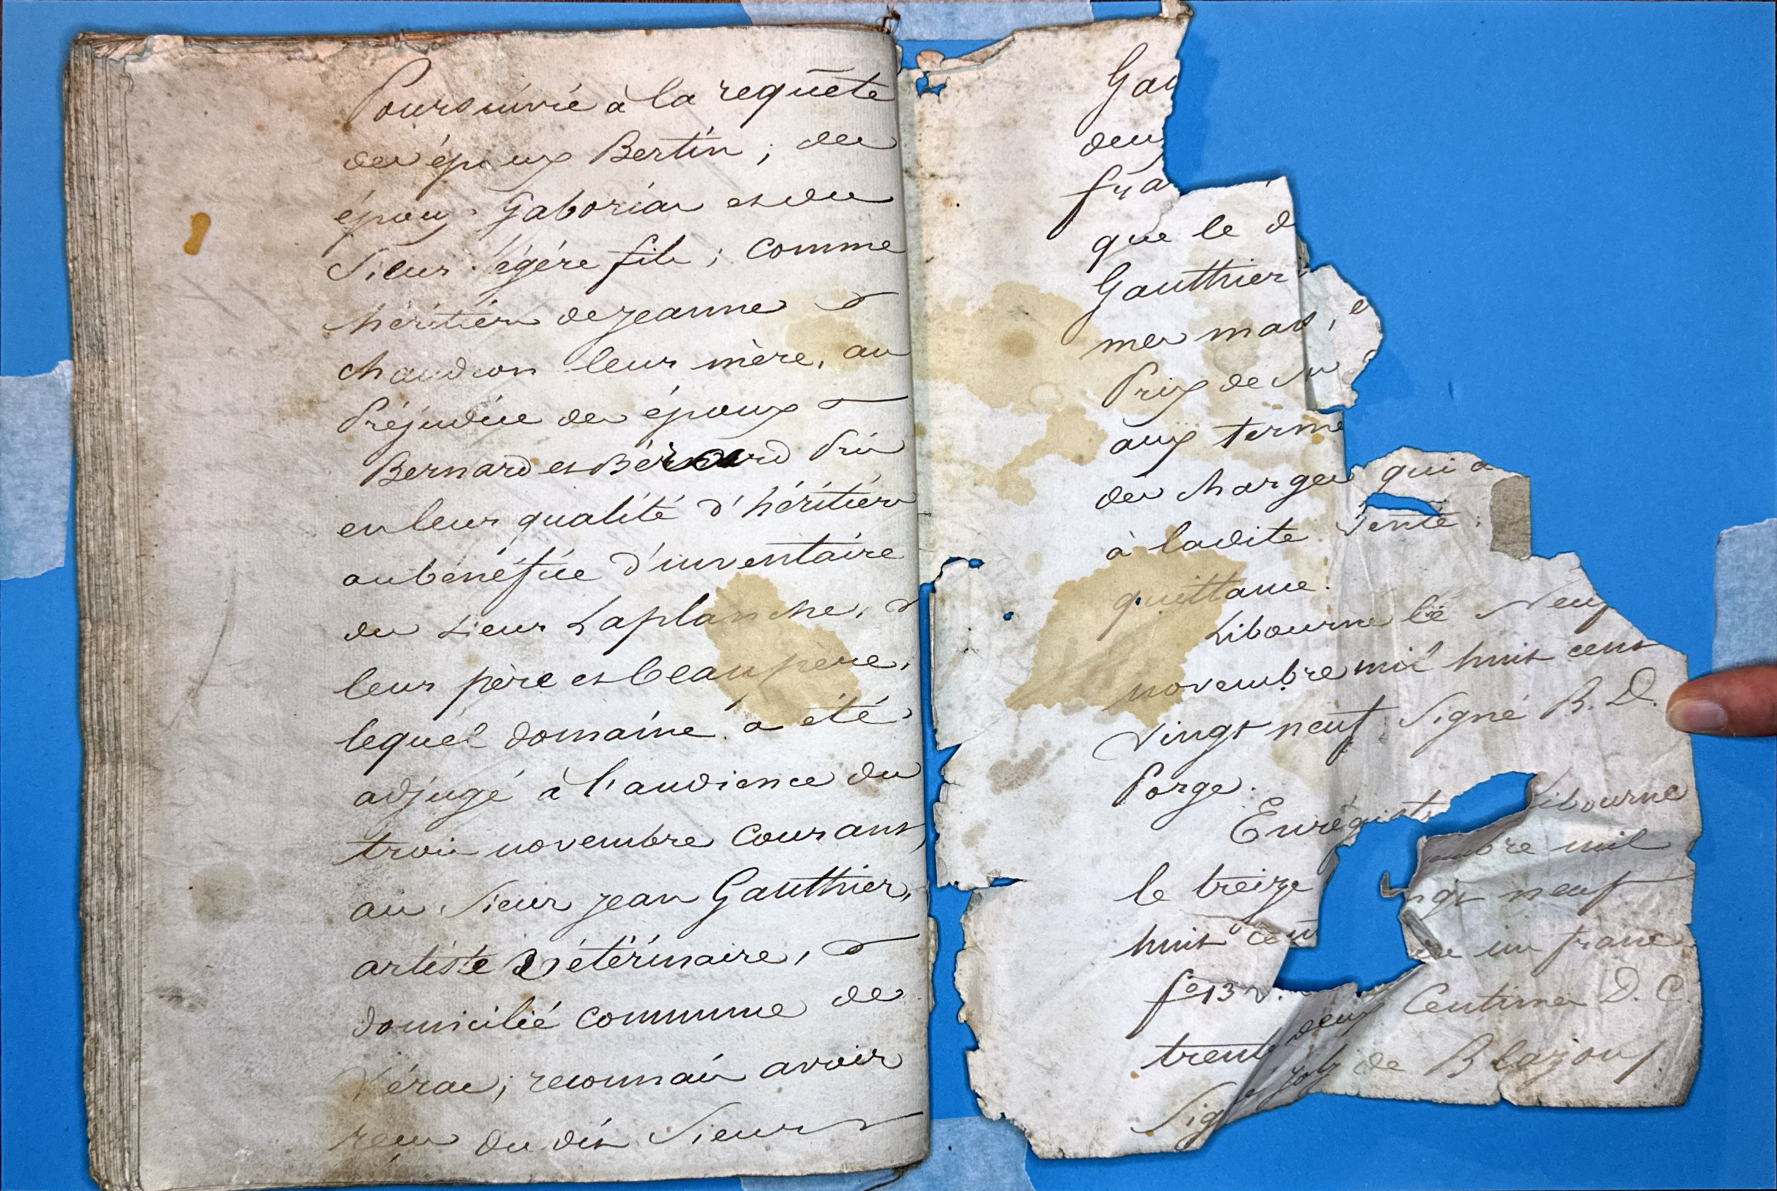 Poursuivie à la requête
des époux Bertin, des
époux Gaboriau et du
Sieur Légére fils ; comme
héritiers de jeanne
chaudron leur mère, au
Préjudice des époux
Bernard et Bernard Pris
en leur qualité d'héritiers
au bénéfice d'inventaire
du Sieur Laplanche,
leur père et beau père,
lequel domaine a été
adjugé à l'audience du
trois novembre courant,
au Sieur jean Gauthier,
artiste vétérinaire,
domicilié commune de
Vérac, reconnais avoir
reçu du dit Sieur
Gau
deux
fra
que le d
Gauthier
mes mais, e
Prix de
aux terme
des charges qui a
à ladite vente.
quittance.
Libourne le Neuf
novembre mil huit cent
vingt neuf. Signé B. D.
Porge.
Enregist Libourne
le treize mbre mil
huit cent ngt neuf
f° 13 v. un franc
trente deux Centimes D. C.
Sig de Blazouf